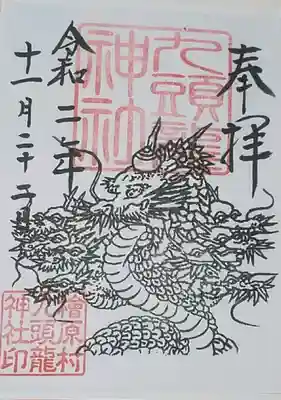 奉拝
九頭龍
神社
令和二年
十一月二十二日
檜原村
九頭龍
神社印